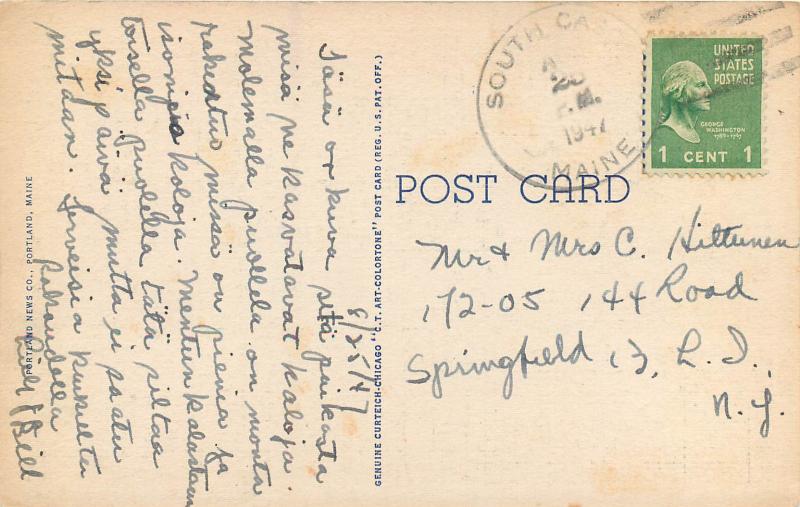 8/25/47
Tässä on kuva sitä paikasta
missä ne kasvatavat kaloja.
Molemalla puollela on monta
rakedtus missä on pienia ja
isonjia kaloja. Mentiin kalastaan
toisella puolella tätä siltaa
yksi päivä mutta ei saatu
mitään. Terveisia kaikselta
Rakaudella
& Bill
PORTLAND NEWS CO., PORTLAND, MAINE
GENUINE CURTEICH-CHICAGO "C.T. ART-COLORTONE" POST CARD (REG. U.S. PAT. OFF.)
SOUTH CA
25
P.M.
1947
MAINE
UNITED
STATES
POSTAGE
GEORGE
WASHINGTON
1789-1797
1 CENT 1
POST CARD
Mr & Mrs C. Hiltunen
172-05 144 Road
Springfield 13, L. I.,
N. Y.